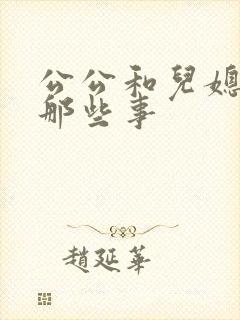 公公和兒媳
那些事
趙延華